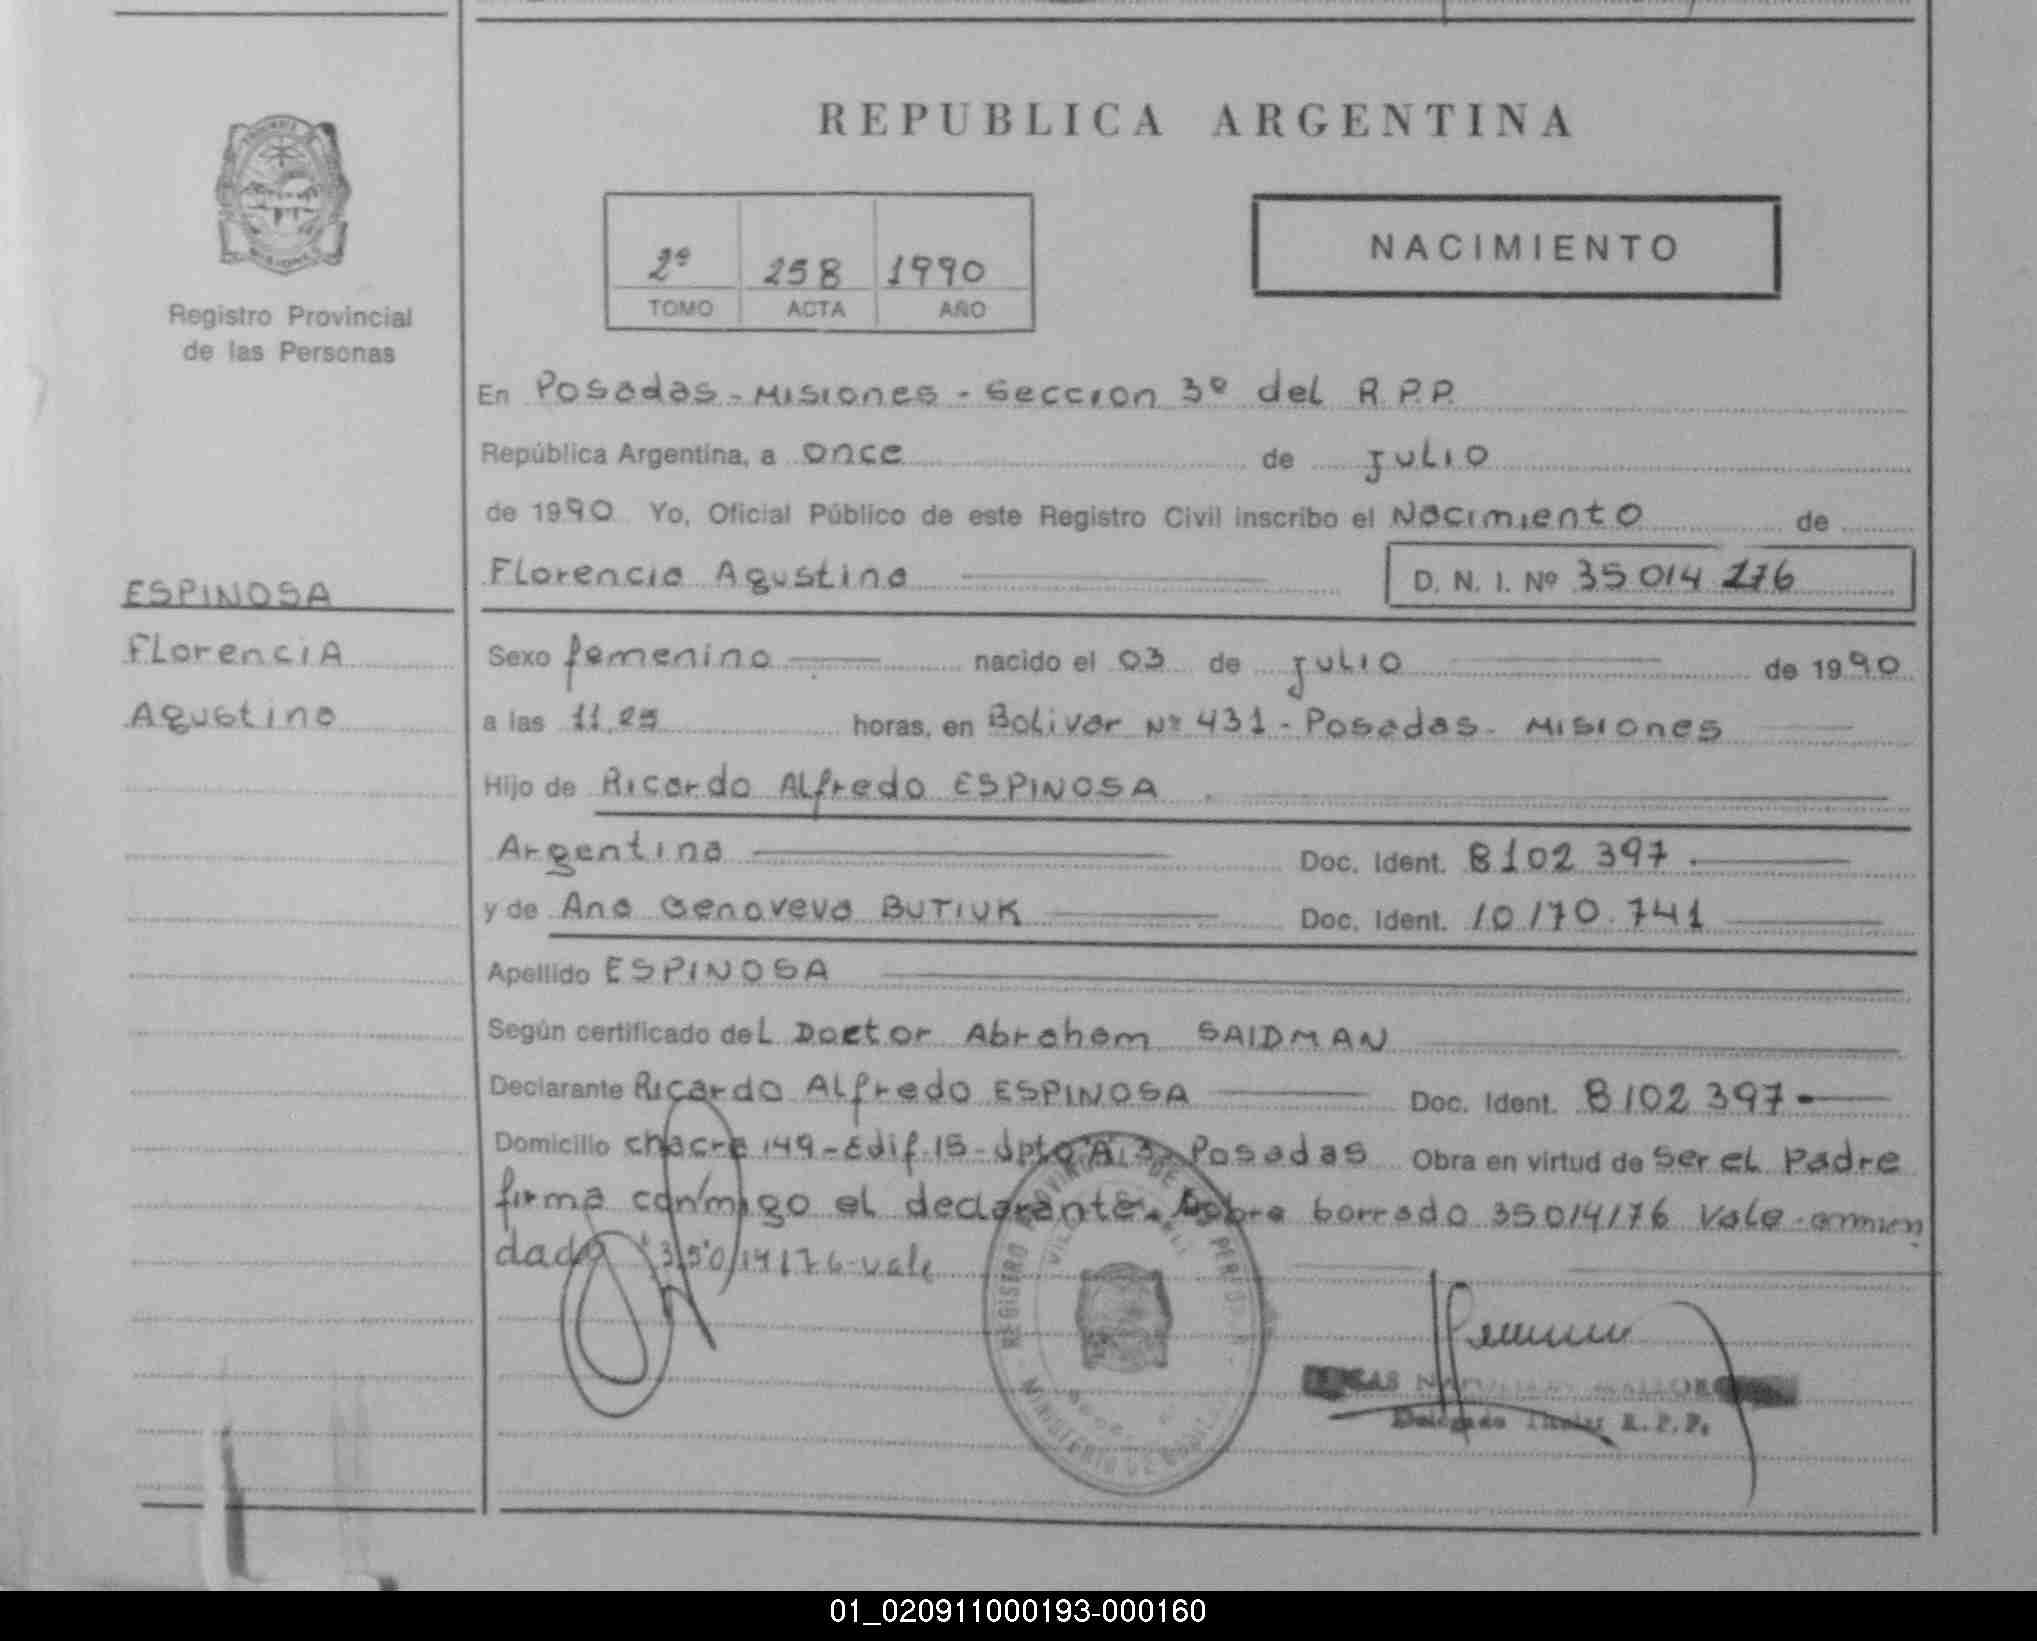 REPUBLICA ARGENTINA
2º 258 1990
TOMO ACTA AÑO
NACIMIENTO
Registro Provincial
de las Personas
En Posadas - Misiones - Seccion 3º del R.P.P.
República Argentina, a once de julio
de 1990 Yo, Oficial Público de este Registro Civil inscribo el Nacimiento de
Florencia Agustina D. N. I. Nº 35 014 176
ESPINOSA
Florencia
Agustina
Sexo femenino nacido el 03 de julio de 1990
a las 11,25 horas, en Bolivar Nº 431 - Posadas - Misiones
Hijo de Ricardo Alfredo ESPINOSA
Argentina Doc. Ident. 8102 397
y de Ana Genoveva BUTIUK Doc. Ident. 10170.741
Apellido ESPINOSA
Según certificado del Doctor Abraham SAIDMAN
Declarante Ricardo Alfredo ESPINOSA Doc. Ident. 8102 397
Domicilio chacra 149 - Edif. 15 - dpto "A" 3 - Posadas Obra en virtud de Ser el Padre
firma conmigo el declarante. Sobre borrado 35014176 Vale - enmen
dado 35014176 - vale
REGISTRO PROVINCIAL DE
MINISTERIO DE
Delegado Titular R.P.P.
01_020911000193-000160